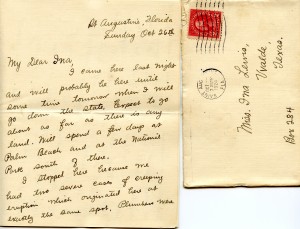 St Augustine, Florida
Sunday Oct 26th
My Dear Ina,
I came here last night
and will probably be here until
some time tomorrow when I will
go down the state. Expect to go
about as far as there is any
land. Will spend a few days at
Palm Beach and at the National
Park south of there.
I stopped here because we
had two severe cases of creeping
eruption which originated here at
exactly the same spot. Plumbers were
Miss. Ina Lewis,
Uvalde,
Texas.
Box 284